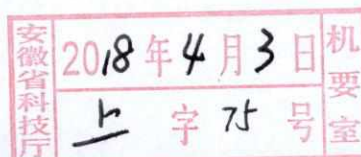 安徽省科技厅
2018年4月3日
上字75号
机要室